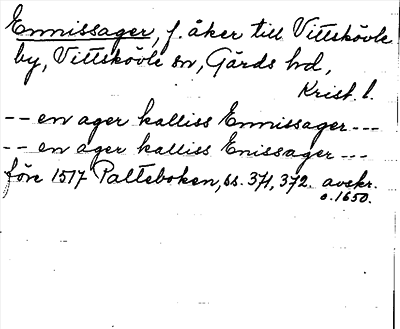 Ennissager, f. åker till Vittskövle
by, Vittskövle sn, Gärds hd,
Krist. l.
-- en ager kalliss Ennissager ---
-- en ager kalliss Enissager ---
före 1517 Palteboken, ss. 371, 372. avskr.
o. 1650.